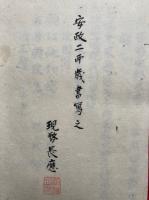 安政二卯歳書写之
現住長應